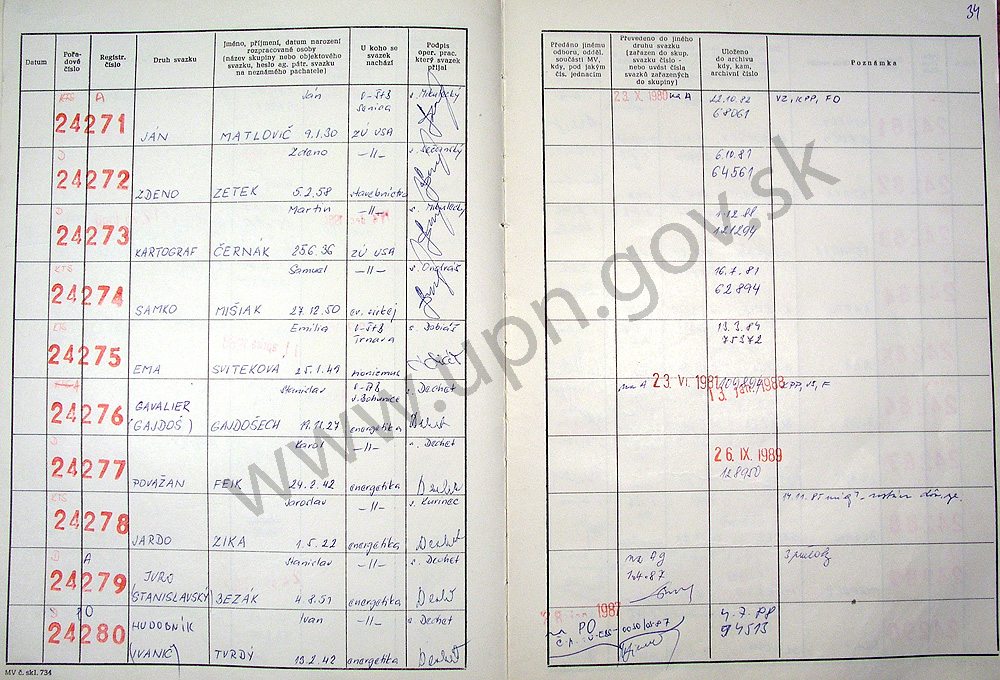 34
Datum
Pořa-
dové
číslo
Registr.
číslo
Druh svazku
Jméno, příjmení, datum narození
rozpracované osoby
(název skupiny nebo objektového
svazku, heslo ag. pátr. svazku
na neznámého pachatele)
U koho se
svazek
nachází
Podpis
oper. prac.
který svazek
přijal
Předáno jinému
odboru, odděl.
součásti MV,
kdy, pod jakým
čís. jednacím
Převedeno do jiného
druhu svazku
(zařazen do skup.
svazku číslo -
nebo uvést čísla
svazků zařazených
do skupiny)
Uloženo
do archivu
kdy, kam,
archivní číslo
Poznámka
KTS A
24271
JÁN
Ján
MATLOVIČ 9.1.30
Senica
ZÚ USA
s. Mikulecký
23. X. 1980 na A
22.10.82
68061
VZ, KPP, FO
D
24272
ZDENO
Zdeno
ZETEK 5.2.58
-II-
stavebníctvo
6.10.81
64561
D
24273
KARTOGRAF
Martin
ČERNÁK 25.6.36
-II-
ZÚ USA
s. Mikulecký
1.12.88
121294
KTS
24274
SAMKO
Samuel
MIŠIAK 27.12.50
-II-
ev. cirkej
s. Ondráš
16.7.81
62894
KTS
24275
EMA
Emília
SVITEKOVA 25.1.41
Trnava
s. Dobiáš
13.3.84
75372
24276
GAVALIER
(GAJDOŠ)
Stanislav
GAJDOŠECH 19.11.27
energetika
s. Dechet
na A 23. VI. 1981
109894
24277
POVAŽAN
Karol
FEIK 24.2.42
-II-
energetika
s. Dechet
26. IX. 1989
128950
KTS
24278
JARDO
Jaroslav
ZIKA 1.5.22
-II-
energetika
s. Kurinec
14.11.85
D A
24279
JURO
(STANISLAVSKÝ)
Stanislav
BEZÁK 4.8.51
-II-
energetika
s. Dechet
na Ag
1.4.87
24280
HUDOBNÍK
(IVANIČ)
Ivan
TVRDÝ 13.2.42
-II-
energetika
s. Dechet
1987
na PO
4.7.88
94513
MV č. skl. 734
www.upn.gov.sk